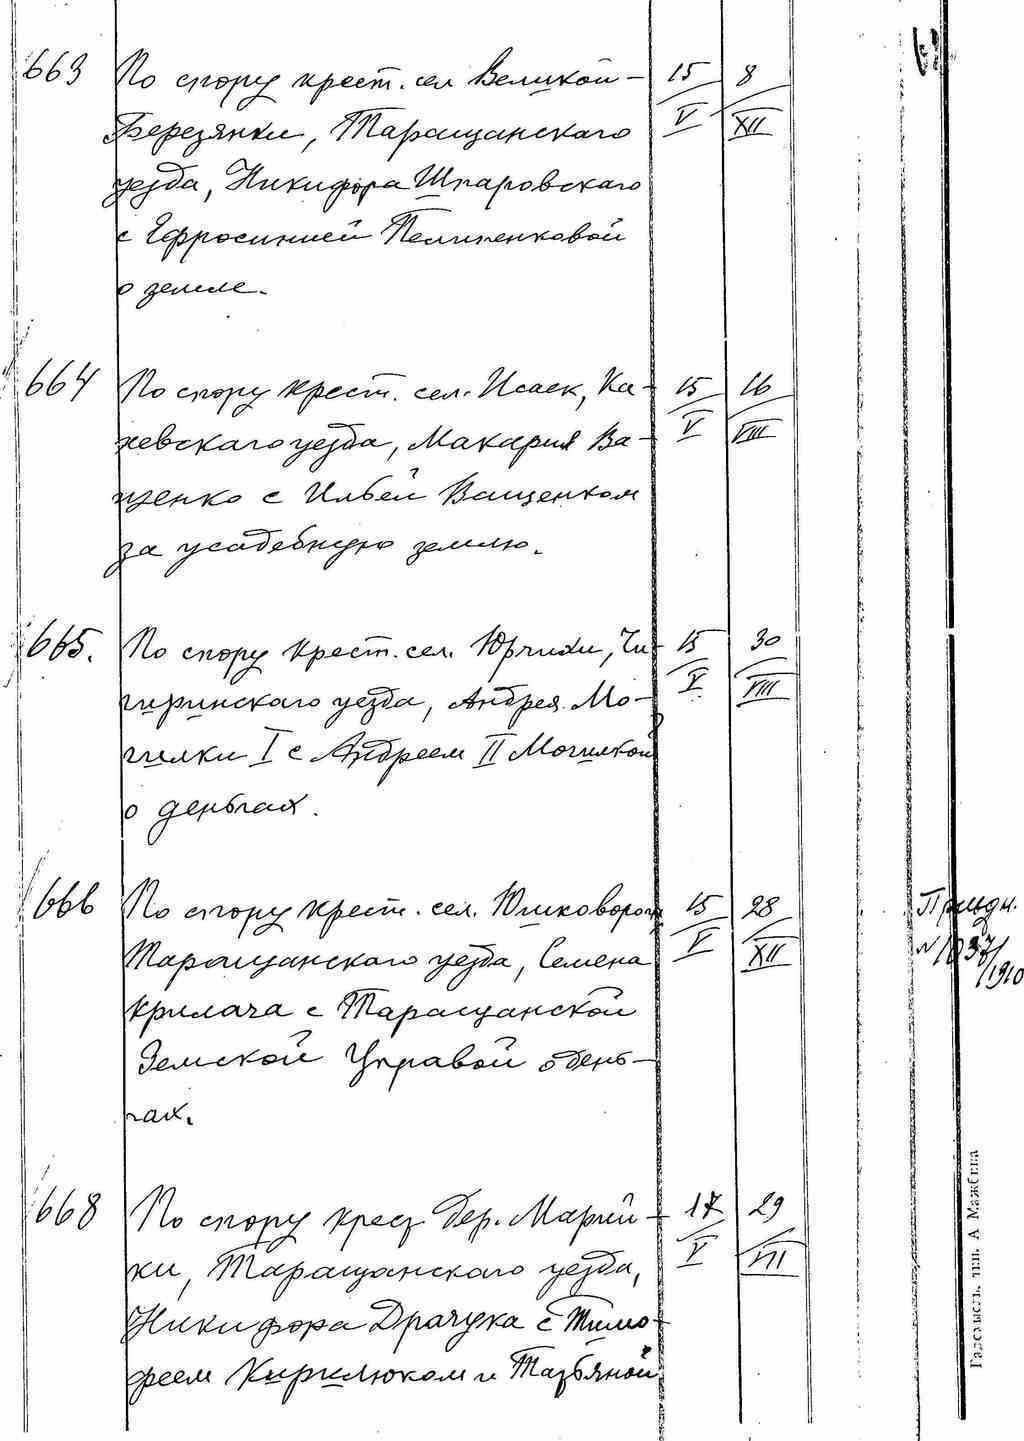 663 По спору крест. сел Великой-
Березянки, Таращанскаго
уезда, Никифора Шпаровскаго
с Ефросинией Пелипенковой
о земле.
15/V 8/XII
664 По спору крест. сел. Исаек, Ка-
невскаго уезда, Макария Ва-
щенко с Ильей Ващенком
за усадебную землю.
15/V 16/VIII
665. По спору крест. сел. Юрчихи, Чи-
гиринскаго уезда, Андрея Мо-
гилки I с Андреем II Могилкой
о деньгах.
15/V 30/VIII
666 По спору крест. сел. Юшковорог
Таращанскаго уезда, Семена
Крилача с Таращанской
Земской Управой о день-
гах.
15/V 28/XII
N 1037/1910
668 По спору крест дер. Марий-
ки, Таращанскаго уезда,
Никифора Драчука с Тимо-
феем Кирилюком и Татьяной
17/V 29/VII
тип. А